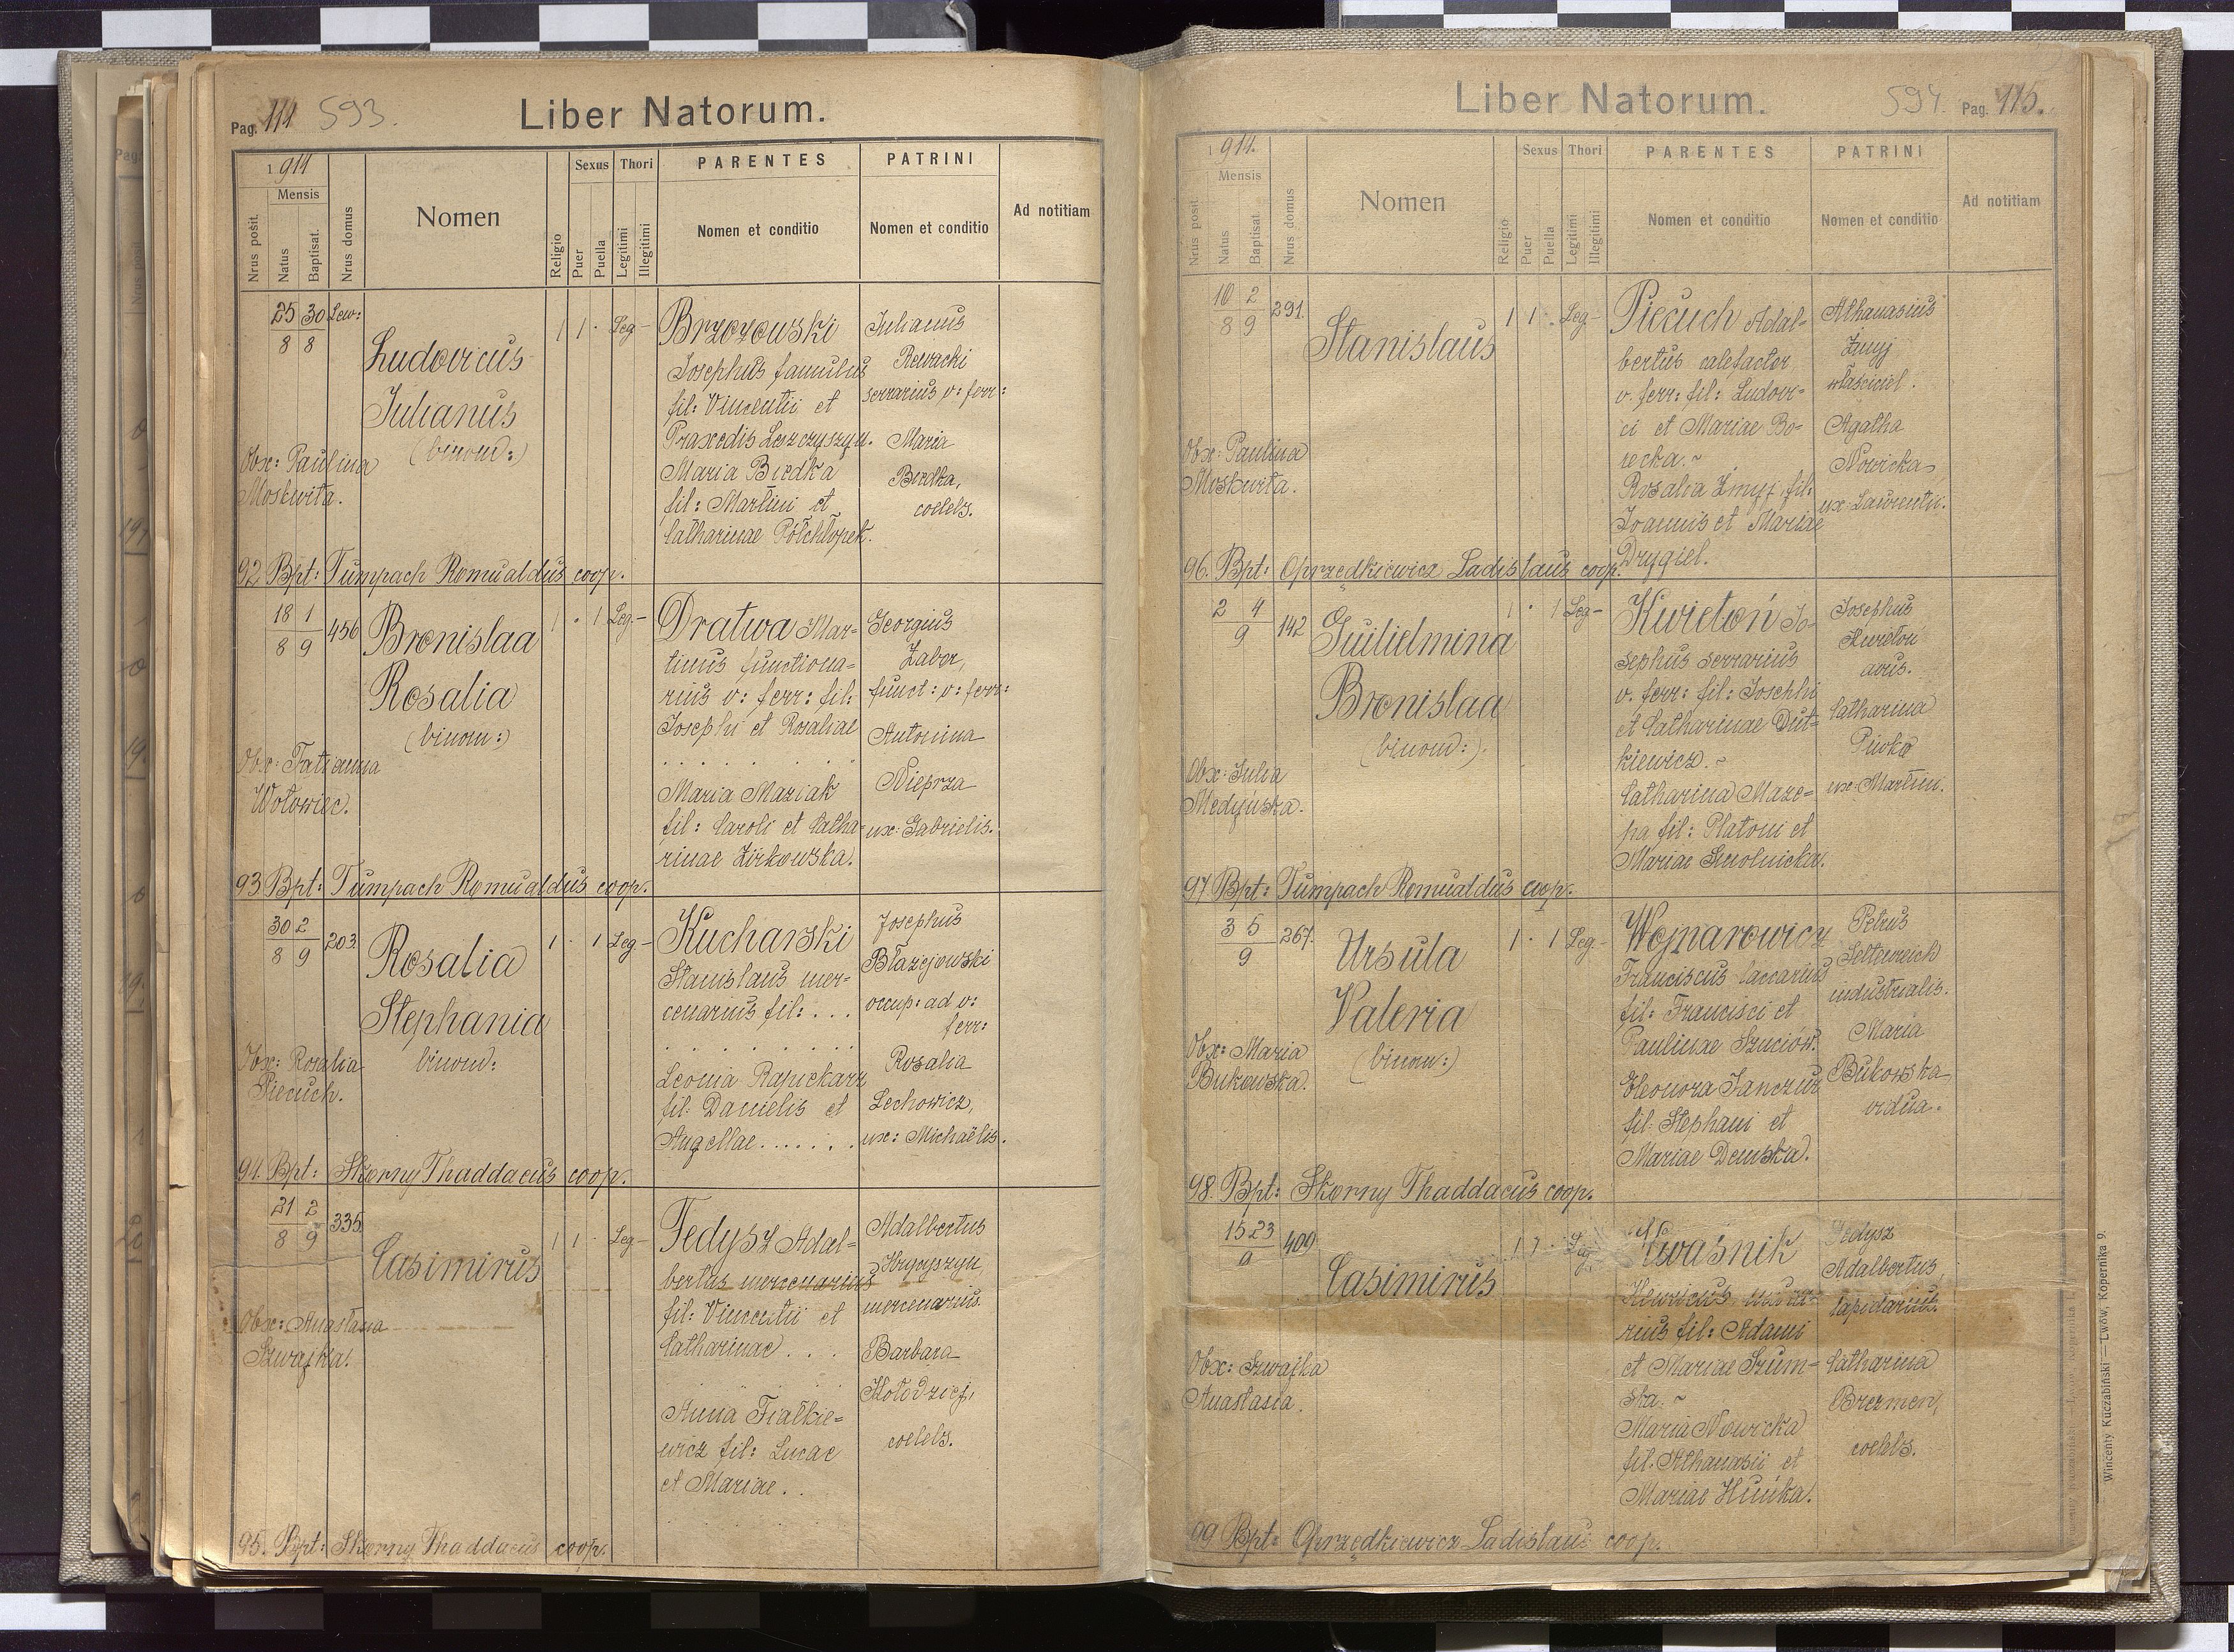 Pag. 114 593.
Liber Natorum.
1914
Mensis
Nrus posit.
Natus
Baptisat.
Nrus domus
Nomen
Religio
Sexus
Puer
Puella
Thori
Legitimi
Illegitimi
PARENTES
Nomen et conditio
PATRINI
Nomen et conditio
Ad notitiam
25 30 Lew:
8 8
Ludovicus
Julianus
(binom:)
1 1 · Leg –
Obx: Paulina
Moskwita.
Brzozowski
Josephus famulus
fil: Vincentii et
Praxedis Leszczyszyn.
Maria Biedka
fil: Martini et
Catharinae Półchłopek.
Julianus
Rewacki
serrarius v: ferr:
Maria
Biedka,
coelebs.
92 Bpt: Tumpach Romualdus coop.
18 1
8 9
456
Bronislaa
Rosalia
(binom:)
1 · 1 Leg –
Obx: Tatianna
Wołowiec.
Dratwa Mar-
tinus functiona-
rius v: ferr: fil:
Josephi et Rosaliae
. . . . . .
Maria Maziak
fil: Caroli et Catha-
rinae Zirkowska.
Georgius
Zabor,
funct: v: ferr:
Antonina
Nieprza
ux: Gabrielis.
93 Bpt: Tumpach Romualdus coop.
30 2
8 9
203.
Rosalia
Stephania
binom:
1 · 1 Leg –
Obx: Rosalia
Piecuch.
Kucharski
Stanislaus mer-
cenarius fil: . . .
. . . . . . .
Leonia Rapickarz
fil: Danielis et
Angellae . . . . . .
Josephus
Błażejowski
occup: ad v:
ferr:
Rosalia
Lechowicz,
ux: Michaëlis.
94. Bpt: Skorny Thaddaeus coop.
21 2
8 9
335.
Casimirus
1 1 · Leg –
Obx: Anastasia
Szwajka.
Fedysz Adal-
bertus mercenarius
fil: Vincentii et
Catharinae . . .
Anna Fiałkie-
wicz fil: Lucae
et Mariae . .
Adalbertus
Hryszyn,
mercenarius.
Barbara
Kołodziej,
coelebs.
95. Bpt: Skorny Thaddaeus coop.
Liber Natorum.
594. Pag. 115.
1914.
Mensis
Nrus posit.
Natus
Baptisat.
Nrus domus
Nomen
Religio
Sexus
Puer
Puella
Thori
Legitimi
Illegitimi
PARENTES
Nomen et conditio
PATRINI
Nomen et conditio
Ad notitiam
10 2
8 9
291.
Stanislaus
1 1 · Leg –
Obx: Paulina
Moskwita.
Piecuch Adal-
bertus calefactor
v. ferr: fil: Ludovi-
ci et Mariae Bo-
recka. ~
Rosalia Zmyj fil:
Joannis et Mariae
Drygiel.
Athanasius
Zmyj
właściciel.
Agatha
Nowicka
ux: Laurentii.
96. Bpt: Oprzędkiewicz Ladislaus coop.
2 4
9
142
Guilielmina
Bronislaa
(binom:).
1 · 1 Leg –
Obx: Julia
Medyńska.
Kwietoń Jo-
sephus serrarius
v. ferr: fil: Josephi
et Catharinae Dut-
kiewicz. ~
Catharina Maze-
pa fil: Platoni et
Mariae Smolnicka.
Josephus
Kwietoń
avus.
Catharina
Piwko
ux: Martini.
97 Bpt: Tumpach Romualdus coop.
3 5
9
267.
Ursula
Valeria
(binom:)
1 · 1 Leg. –
Obx: Maria
Bukowska.
Wojnarowicz
Franciscus laccarius
fil: Francisci et
Paulinae Szuciów.
Eleonora Janczur
fil: Stephani et
Mariae Demska.
Petrus
Seltenreich
industrialis.
Maria
Bukowska,
vidua.
98. Bpt: Skorny Thaddaeus coop.
15 23
9
409
Casimirus
1 1 · Leg
Obx: Szwajka
Anastasia.
Kwaśnik
Henricus
rius fil: Adami
et Mariae Szum-
ska. ~
Maria Nowicka
fil: Athanasii et
Mariae Huńka.
Fedysz
Adalbertus,
lapidarius.
Catharina
Brezmen,
coelebs.
99 Bpt: Oprzędkiewicz Ladislaus coop.
Wincenty Kuczabiński — Lwów, Kopernika 9.